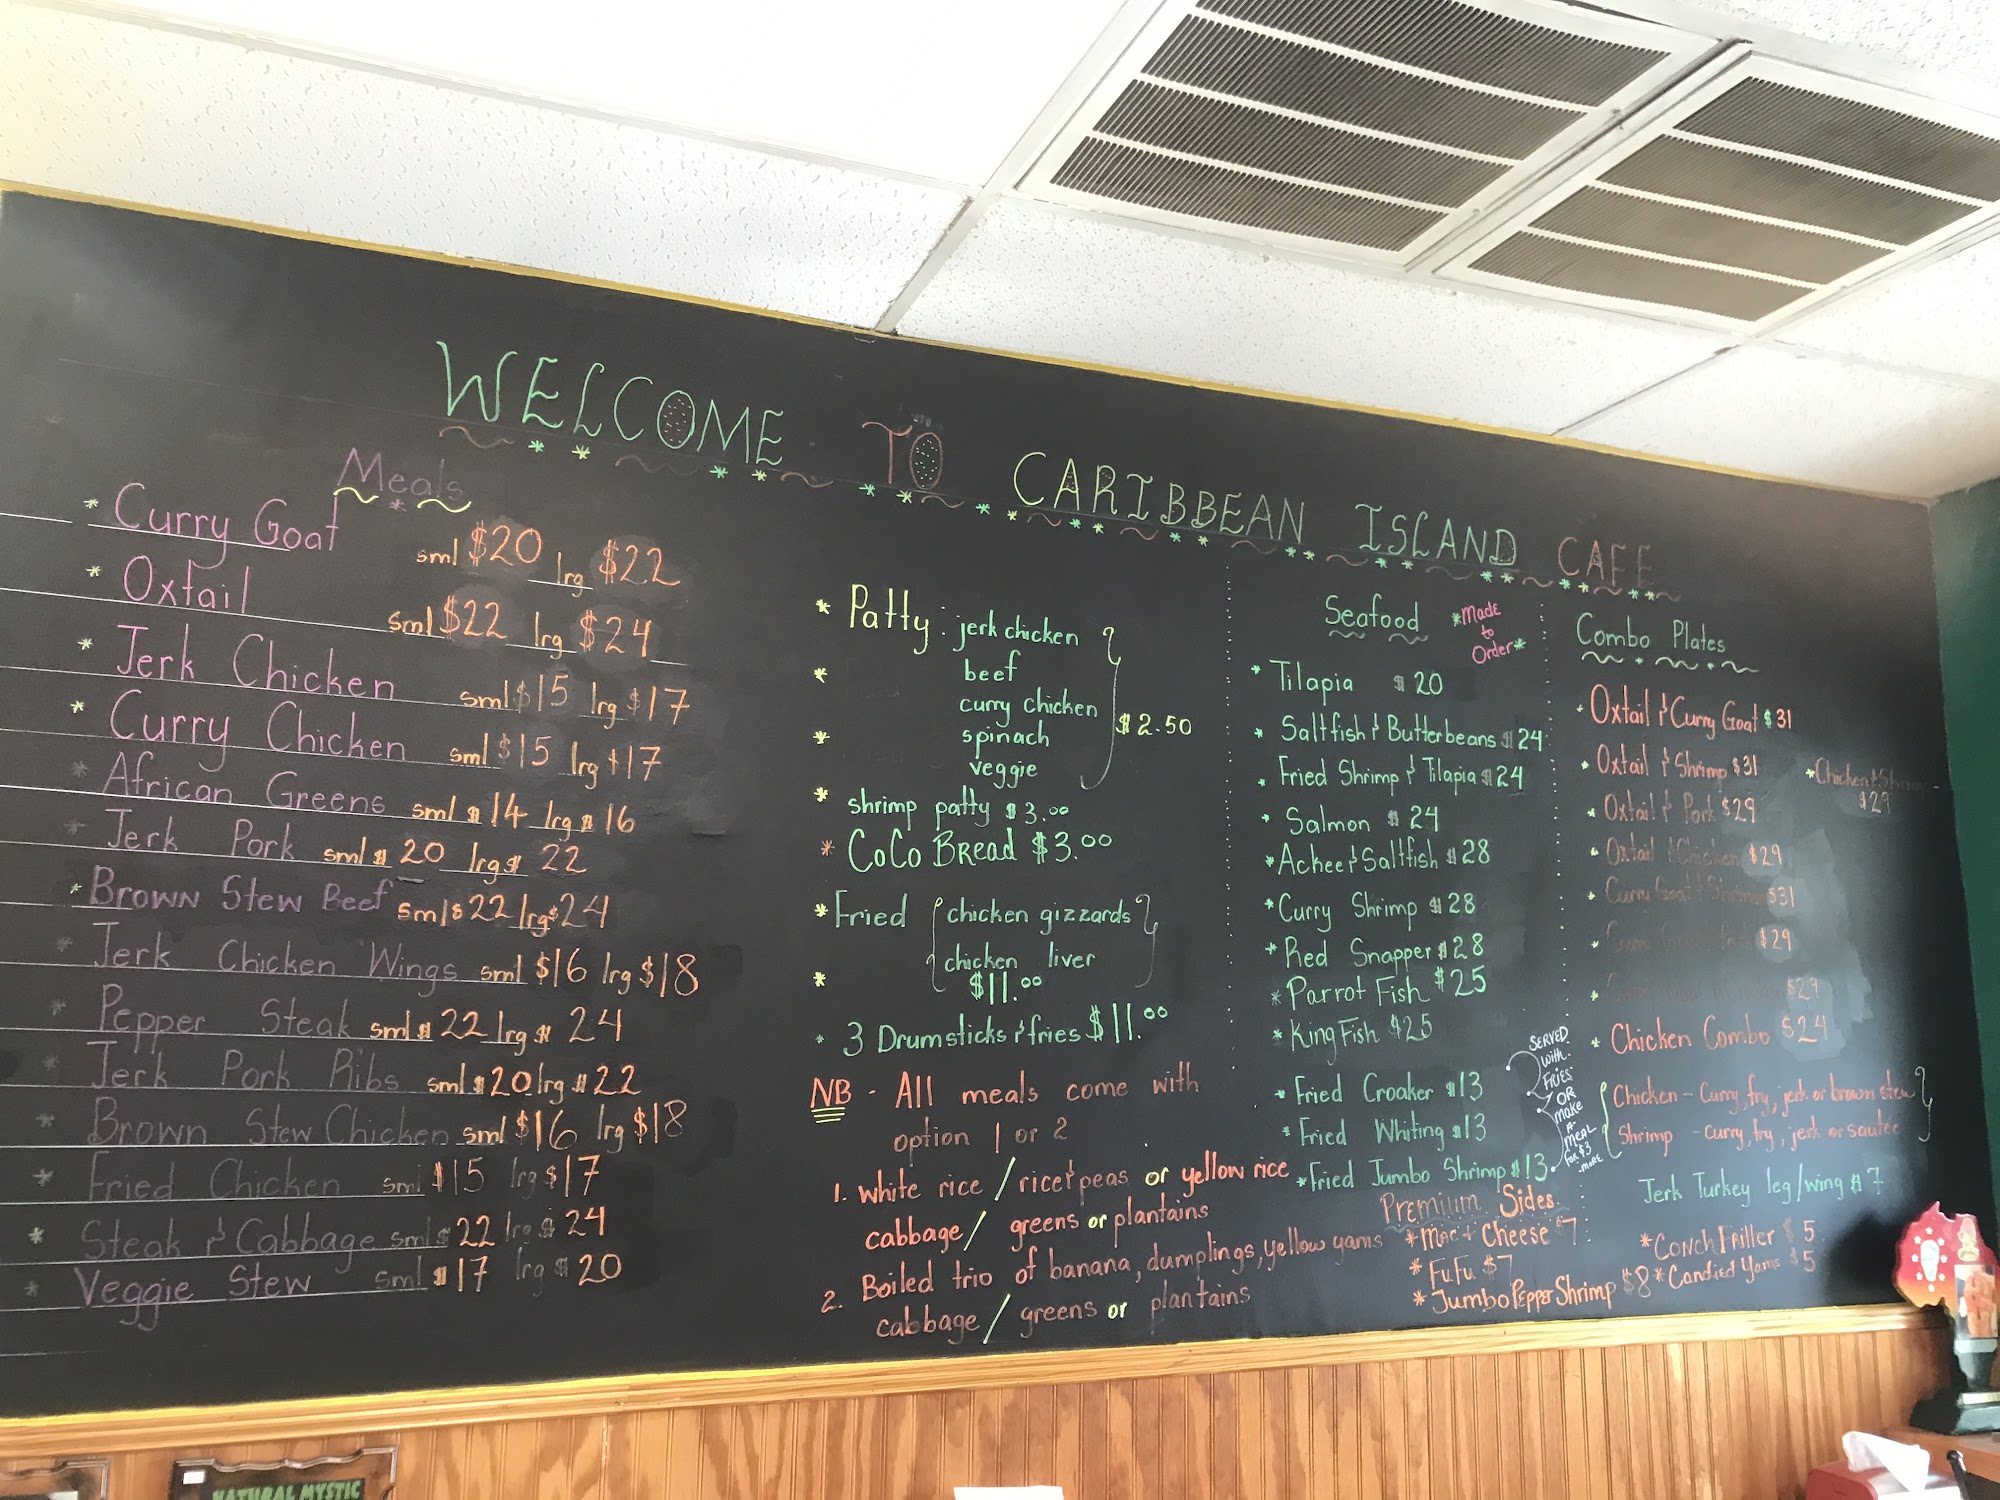 WELCOME TO CARIBBEAN ISLAND CAFE
Meals
* Curry Goat sml $20 lrg $22
* Oxtail sml $22 lrg $24
* Jerk Chicken sml $15 lrg $17
* Curry Chicken sml $15 lrg $17
* African Greens sml $14 lrg $16
* Jerk Pork sml $20 lrg $22
* Brown Stew Beef sml $22 lrg $24
* Jerk Chicken Wings sml $16 lrg $18
* Pepper Steak sml $22 lrg $24
* Jerk Pork Ribs sml $20 lrg $22
* Brown Stew Chicken sml $16 lrg $18
* Fried Chicken sml $15 lrg $17
* Steak & Cabbage sml $22 lrg $24
* Veggie Stew sml $17 lrg $20
* Patty: jerk chicken
beef
curry chicken
$2.50
spinach
veggie
* shrimp patty $3.00
* CoCo BRead $3.00
* Fried chicken gizzards
chicken liver
$11.00
* 3 Drumsticks & fries $11.00
NB - All meals come with
option 1 or 2
1. white rice / rice & peas or yellow rice
cabbage / greens or plantains
2. Boiled trio of banana, dumplings, yellow yams
cabbage / greens or plantains
Seafood
*Made
to
Order*
* Tilapia $20
* Saltfish & Butterbeans $24
* Fried Shrimp & Tilapia $24
* Salmon $24
* Ackee & Saltfish $28
* Curry Shrimp $28
* Red Snapper $28
* Parrot Fish $25
* King Fish $25
* Fried Croaker $13
* Fried Whiting $13
* Fried Jumbo Shrimp $13
SERVED
with
FRIES
OR
make
A
MEAL
for $3
more
Premium Sides
* Mac + Cheese $7
* FuFu $7
* Jumbo Pepper Shrimp $8
* Conch Friller $5
* Candied Yams $5
Combo Plates
* Oxtail & Curry Goat $31
* Oxtail & Shrimp $31
* Oxtail & Pork $29
* Oxtail & Chicken $29
* Curry Goat & Shrimp $31
$29
$29
* Chicken & Shrimp -
$29
* Chicken Combo $24
Chicken - Curry, fry, jerk or brown stew
Shrimp - curry, fry, jerk or sautee
Jerk Turkey leg/wing $7
NATURAL MYSTIC